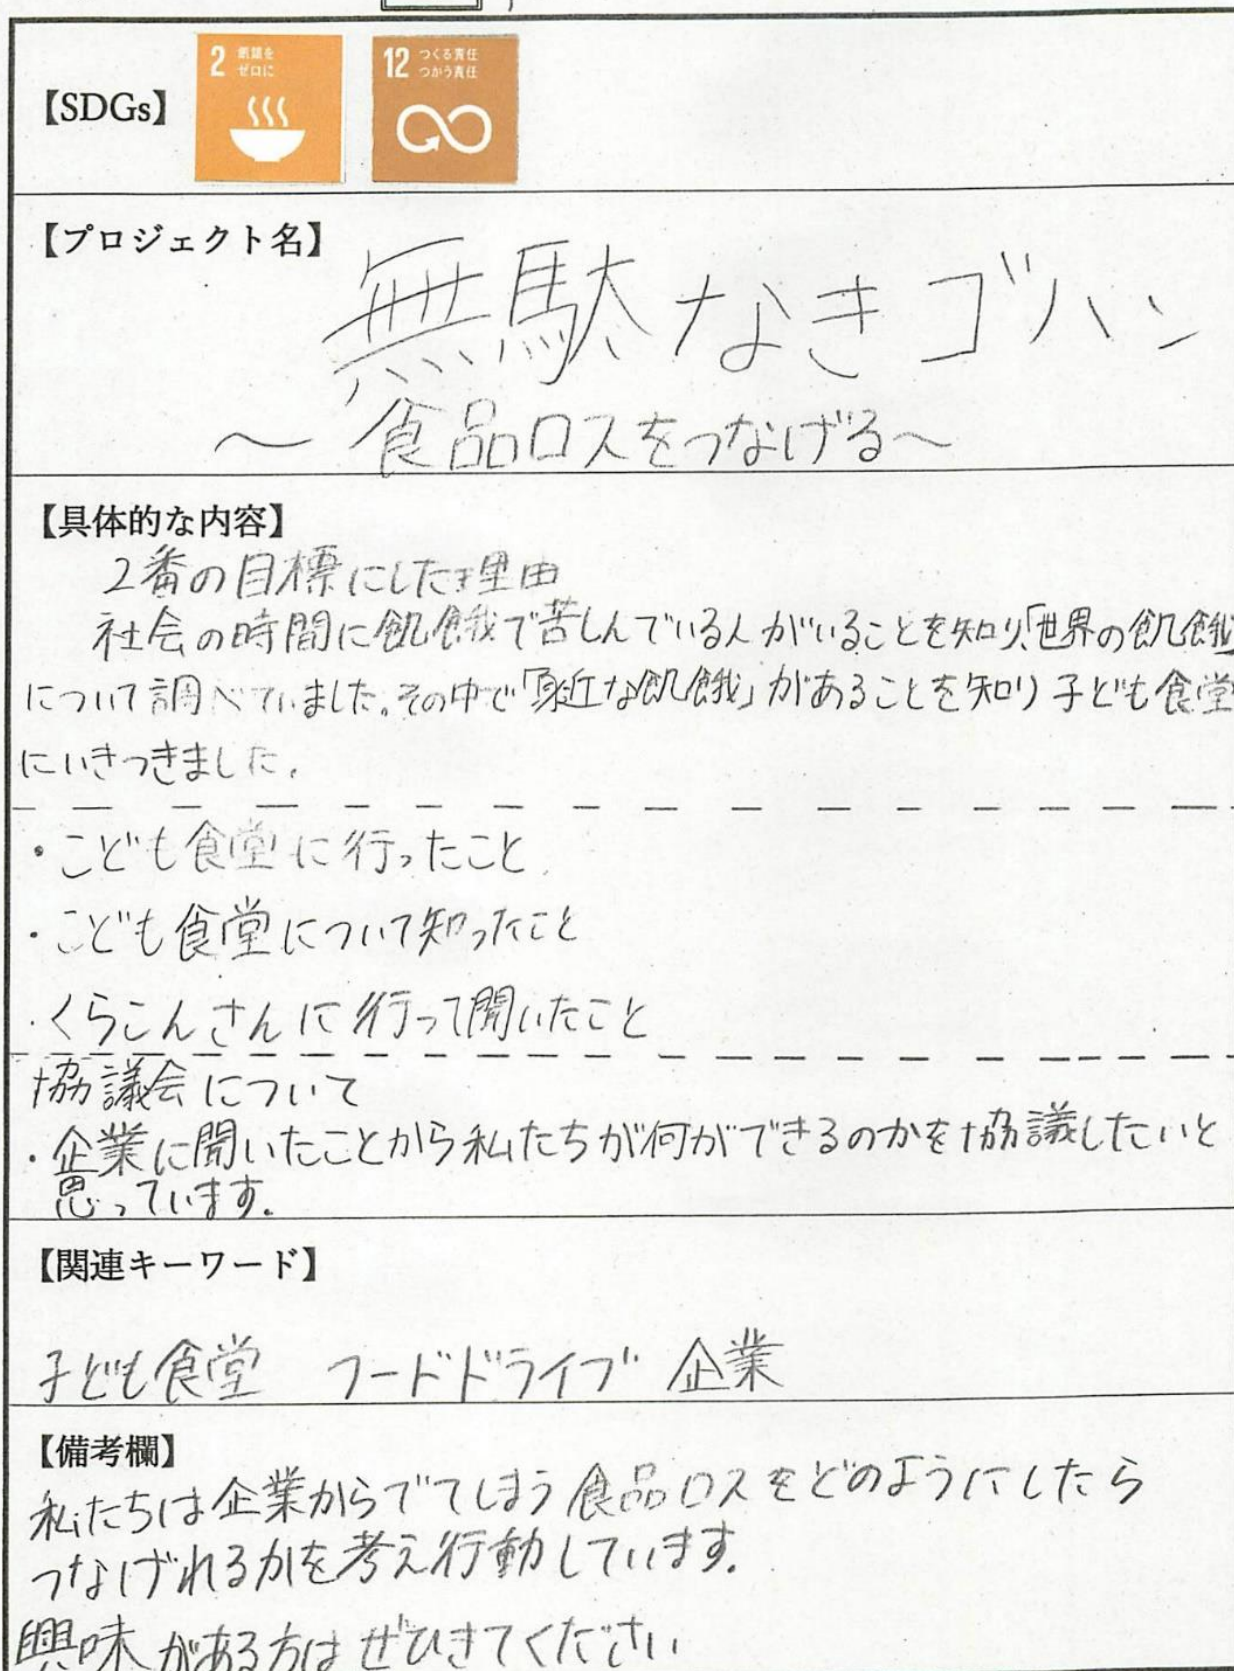 【SDGs】
2 飢餓を
ゼロに
12 つくる責任
つかう責任
【プロジェクト名】
無駄なきゴハン
～食品ロスをつなげる～
【具体的な内容】
2番の目標にした理由
社会の時間に飢餓で苦しんでいる人がいることを知り、「世界の飢餓」
について調べていました。その中で「身近な飢餓」があることを知り子ども食堂
にいきつきました。
・こども食堂に行ったこと
・こども食堂について知ったこと
・くらこんさんに行って聞いたこと
協議会について
・企業に聞いたことから私たちが何ができるのかを協議したいと
思っています。
【関連キーワード】
子ども食堂 フードドライブ 企業
【備考欄】
私たちは企業からでてしまう食品ロスをどのようにしたら
つなげれるかを考え行動しています。
興味がある方はぜひきてください